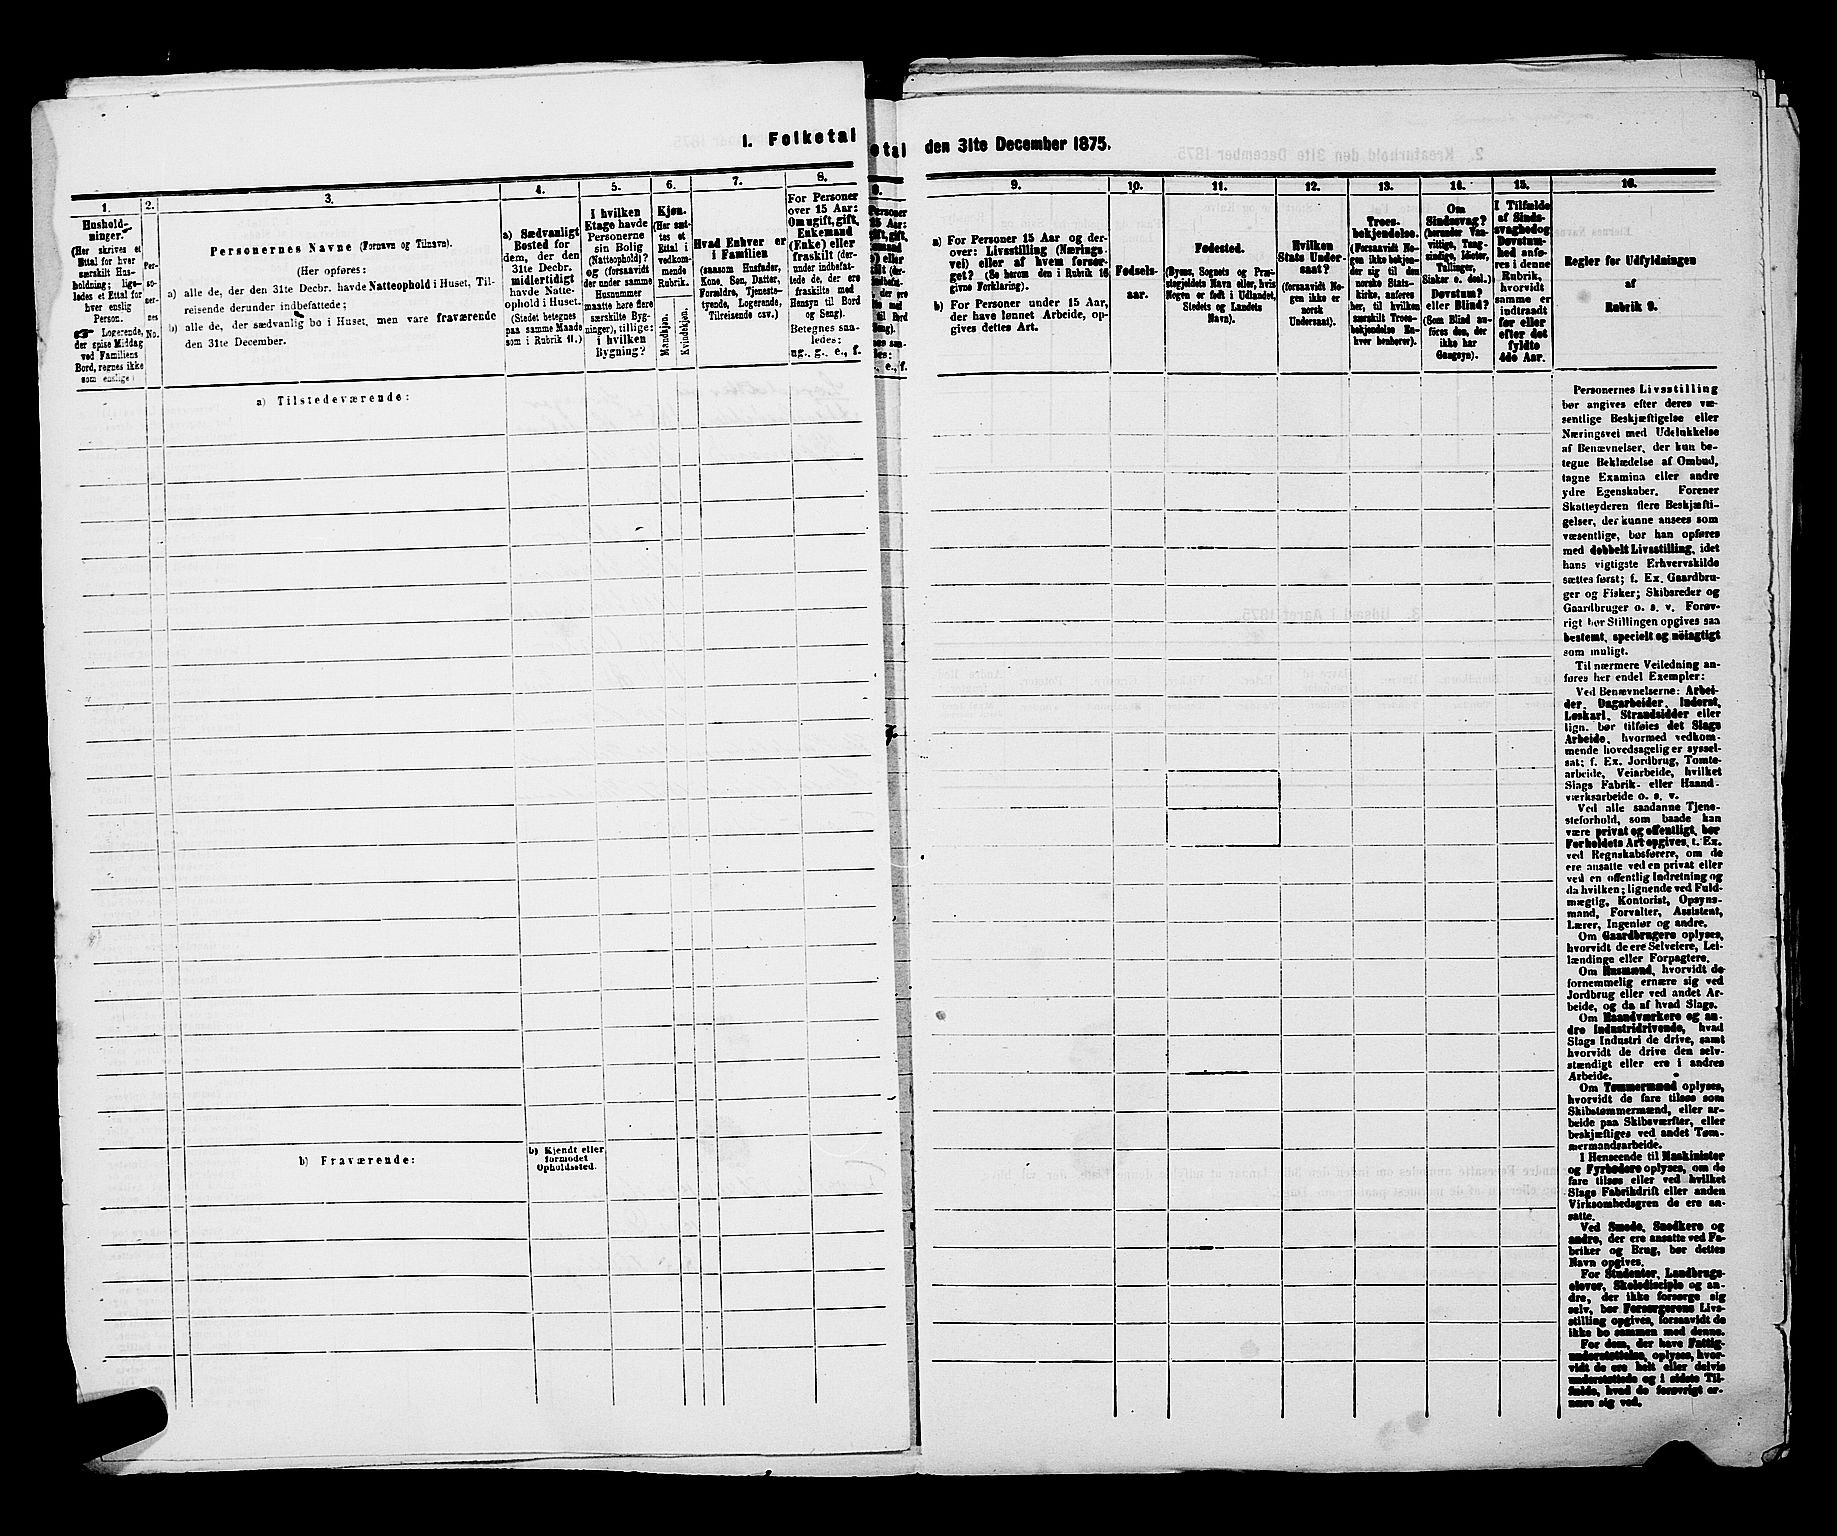 1. Folketal
den 31te December 1875.
1.
Hushold-
ninger.
(Her skrives et
Ettal for hver
særskilt Hus-
holdning; lige-
ledes et Ettal for
hver enslig
Person.
☞ Logerende,
der spise Middag
ved Familiens
Bord, regnes ikke
som enslige)
2.
Per-
so-
ner-
nes
No.
3.
Personernes Navne (Fornavn og Tilnavn).
(Her opføres:
a) alle de, der den 31te Decbr. havde Natteophold i Huset, Til-
reisende derunder indbefattede;
b) alle de, der sædvanlig bo i Huset, men vare fraværende
den 31te December.
4.
a) Sædvanligt
Bosted for
dem, der den
31te Decbr.
midlertidigt
havde Natte-
ophold i Huset.
(Stedet betegnes
paa samme Maade
som i Rubrik 11.)
5.
I hvilken
Etage havde
Personerne
sin Bolig
(Natteophold)?
og (forsaavidt
der under samme
Husnummer
maatte høre flere
særskilte Byg-
ninger), tillige:
i hvilken
Bygning?
6.
Kjøn.
(Her sæt-
tes et
Ettal i
vedkom-
mende
Rubrik.
Mandkjøn.
Kvindekjøn.
7.
Hvad Enhver er
i Familien
(saasom Husfader,
Kone, Søn, Datter,
Forældre, Tjeneste-
tyende, Logerende,
Tilreisende osv.)
8.
For Personer
over 15 Aar:
Om ugift, gift,
Enkemand
(Enke) eller
fraskilt (der-
under indbefat-
tede de, der ere
fraskilte med
Hensyn til Bord
og Seng).
Betegnes saa-
ledes:
ug., g., e., f.
a) Tilstedeværende:
b) Fraværende:
b) Kjendt eller
formodet
Opholdssted.
9.
a) For Personer 15 Aar og der-
over: Livsstilling (Nærings-
vei) eller af hvem forsør-
get? (Se herom den i Rubrik 16
givne Forklaring).
b) For Personer under 15 Aar,
der have lønnet Arbeide, op-
gives dettes Art.
10.
Fødsels-
aar.
11.
Fødested.
(Byens, Sognets og Præ-
stegjeldets Navn eller, hvis
Nogen er født i Udlandet,
Stedets og Landets
Navn).
12.
Hvilken
Stats Under-
saat?
(forsaavidt No-
gen ikke er
norsk
Undersaat).
13.
Troes-
bekjendelse.
(Forsaavidt No-
gen ikke bekjen-
der sig til den
norske Stats-
kirke, anføres
her, til hvilken
særskilt Troes-
bekjendelse En-
hver henhører).
14.
Om
Sindssvag?
(herunder Van-
vittige, Tung-
sindige, Idioter,
Tullinger,
Sinker o. desl.)
Døvstum?
eller Blind?
(Som Blind an-
føres den, der
ikke har
Gangsyn).
15.
I Tilfælde
af Sinds-
svaghed og
Døvstum-
hed anfø-
res i denne
Rubrik,
hvorvidt
samme er
indtraadt
før eller
efter det
fyldte
4de Aar.
16.
Regler for Udfyldningen
af
Rubrik 9.
Personernes Livsstilling
bør angives efter deres væ-
sentlige Beskjæftigelse eller
Næringsvei med Udelukkelse
af Benævnelser, der kun be-
tegne Beklædelse af Ombud,
tagne Examina eller andre
ydre Egenskaber. Forener
Skatteyderen flere Beskjæfti-
gelser, der kunne ansees som
væsentlige, bør han opføres
med dobbelt Livsstilling, idet
hans vigtigste Erhvervskilde
sættes først; f. Ex. Gaardbru-
ger og Fisker; Skibsreder og
Gaardbruger o. s. v. Forøv-
rigt bør Stillingen opgives saa
bestemt, specielt og nöiagtigt
som muligt.
Til nærmere Veiledning an-
føres her endel Exempler:
Ved Benævnelserne: Arbei-
der, Dagarbeider, Inderst,
Løskarl, Strandsidder eller
lign. bør tilføies det Slags
Arbeide, hvormed vedkom-
mende hovedsagelig er syssel-
sat; f. Ex. Jordbrug, Tomte-
arbeide, Veiarbeide, hvilket
Slags Fabrik- eller Haand-
værksarbeide o. s. v.
Ved alle saadanne Tjene-
steforhold, som baade kan
være privat og offentligt, bør
Forholdets Art opgives, f. Ex.
ved Regnskabsførere, om de
ere ansatte ved en privat eller
ved en offentlig Indretning og
da hvilken; lignende ved Fuld-
mægtig, Kontorist, Opsyns-
mand, Forvalter, Assistent,
Lærer, Ingeniør og andre.
Om Gaardbrugere oplyses,
hvorvidt de ere Selveiere, Lei-
lændinge eller Forpagtere.
Om Husmænd, hvorvidt de
fornemmelig ernære sig ved
Jordbrug eller ved andet Ar-
beide, og da af hvad Slags.
Om Haandværkere og an-
dre Industridrivende, hvad
Slags Industri de drive, samt
hvorvidt de drive den selv-
stændigt eller ere i andres
Arbeide.
Om Tømmermænd oplyses,
hvorvidt de fare tilsøs som
Skibstømmermænd, eller ar-
beide paa Skibsværfter, eller
beskjæftiges ved andet Tøm-
mermandsarbeide.
I Henseende til Maskinister
og Fyrbødere oplyses, om de
fare tilsøs eller ved hvilket
Slags Fabrikdrift eller anden
Virksomhedsgren de ere an-
satte.
Ved Smede, Snedkere og
andre, der ere ansatte ved Fa-
briker og Brug, bør dettes
Navn opgives.
For Studenter, Landbrugs-
elever, Skoledisciple og an-
dre, der ikke forsørge sig
selv, bør Forsørgerens Livs-
stilling opgives, forsaavidt de
ikke bo sammen med denne.
For dem, der have Fattig-
understøttelse, oplyses, hvor-
vidt de ere helt eller delvis
understøttede og i sidste Til-
fælde, hvad de forøvrigt er-
nære sig ved.